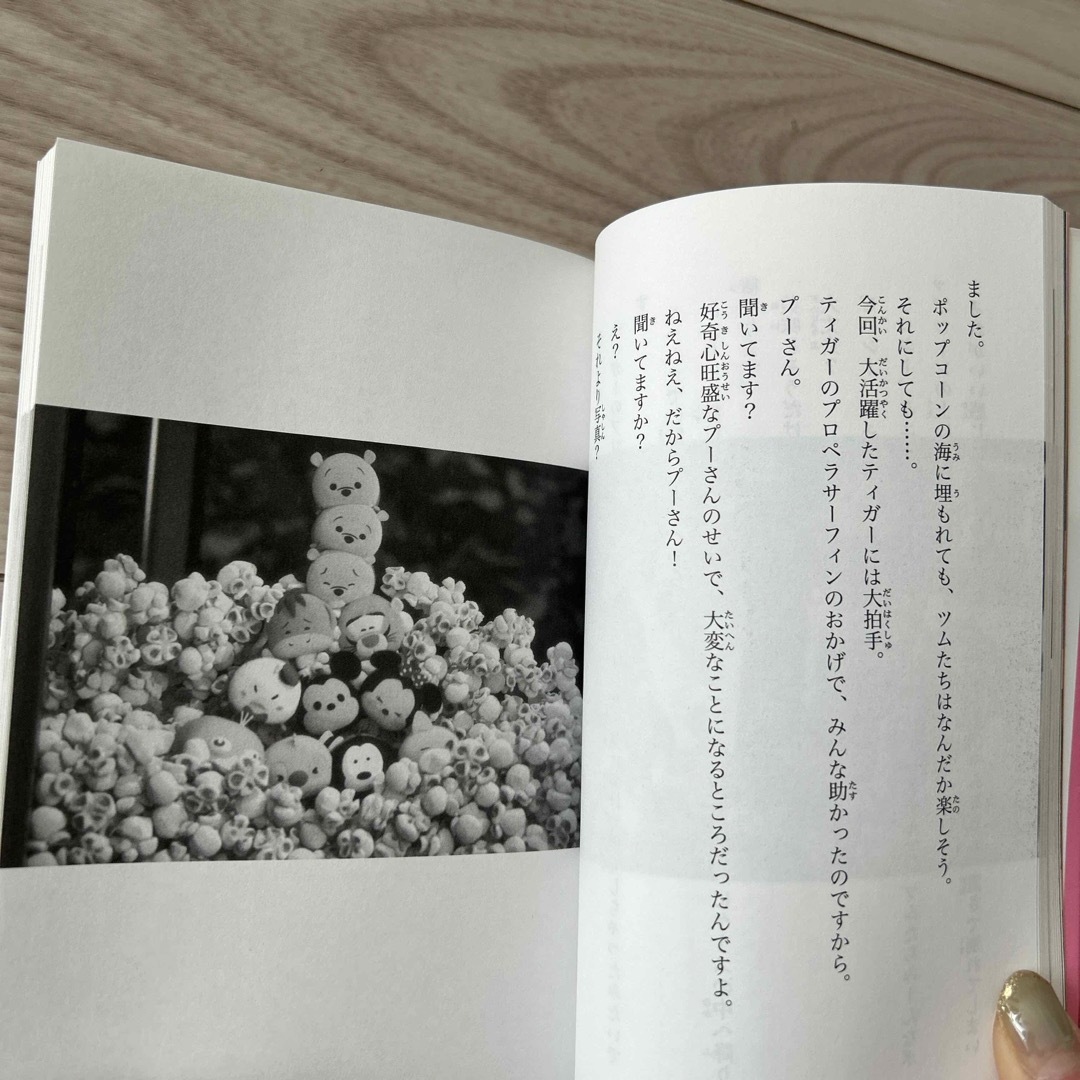 ました。
ポップコーンの海に埋もれても、ツムたちはなんだか楽しそう。
それにしても……。
今回、大活躍したティガーには大拍手。
ティガーのプロペラサーフィンのおかげで、みんな助かったのですから。
プーさん。
聞いてます？
好奇心旺盛なプーさんのせいで、大変なことになるところだったんですよ。
ねえねえ、だからプーさん！
聞いてますか？
え？
それより写真？